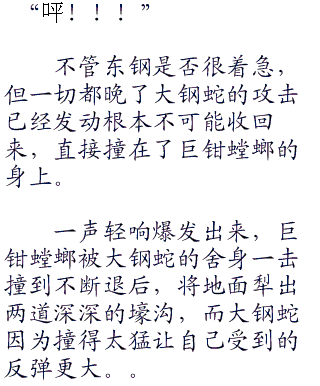 “呯！！！”
不管东钢是否很着急，
但一切都晚了大钢蛇的攻击
已经发动根本不可能收回
来，直接撞在了巨钳螳螂的
身上。
一声轻响爆发出来，巨
钳螳螂被大钢蛇的舍身一击
撞到不断退后，将地面犁出
两道深深的壕沟，而大钢蛇
因为撞得太猛让自己受到的
反弹更大。。